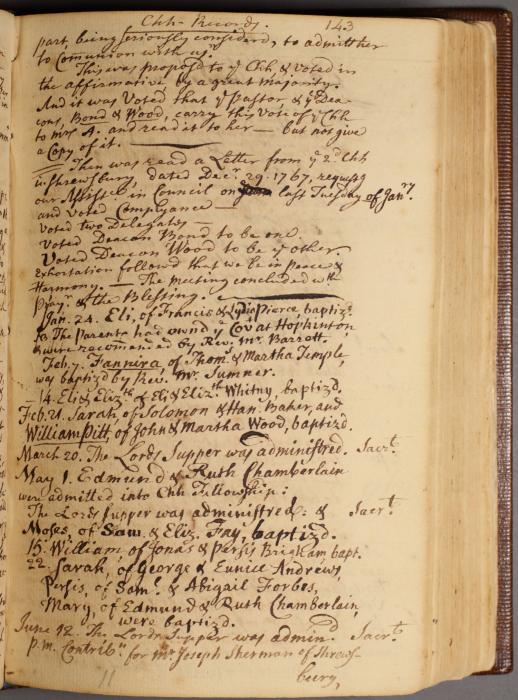 Chh Records. 143
part, being seriously considerd, to admitt her
to Comunion with us.
This was propos'd to yͤ Chh & voted in
the affirmative by a great majority.
And it was Voted that yͤ Pastor & yͤ Dea-
cons, Bond & Wood, carry this Vote of yͤ Chh
to mrs A. and read it to her — but not give
a Copy of it.
Then was read a Letter from yͤ 2.ᵈ Chh
in Shrewsbury, dated Decʳ. 29. 1767, requestg
our Assistce in Council on last Tuesday of Janʸ.
and voted Complyance —
Voted two Delegates —
Voted Deacon Bond to be one
Voted Deacon Wood to be yͤ other.
Exhortation followd that we be in peace &
Harmony. — The meeting concluded wᵗʰ
Prayʳ & the Blessing.
Jan. 24. Eli, of Francis & Lydia Pierce baptizᵈ.
The Parents had ownd yͤ Cov at Hopkinton
& were recommended by Rev. mr. Barrett.
Feb. 7. Fannira, of Thomˢ & Martha Temple,
was baptizd by Rev. Mr. Sumner.
14. Eli & Elizᵗʰ of Eli & Elizᵗʰ Whitny, baptizd.
Feb. 21. Sarah, of Solomon & Han. Baker, and
William Pitt, of John & Martha Wood, baptizd.
March 20. The Lords Supper was administred. Sacrᵗ.
May 1. Edmund & Ruth Chamberlain
were admitted into Chh Fellowship:
The Lords supper was administred: & Sacrᵗ
Moses, of Sam. & Eliz. Fay, baptizd.
15. William of Jonas & Persis Brigham, bapt.
22. Sarah, of George & Eunice Andrews,
Persis, of Samˡ. & Abigail Forbes,
Mary, of Edmund & Ruth Chamberlain,
were baptizd.
June 12. The Lords Supper was admind. Sacrᵗ.
P.M. Contribⁿ for mr Joseph Sherman of Shrews-
bury,